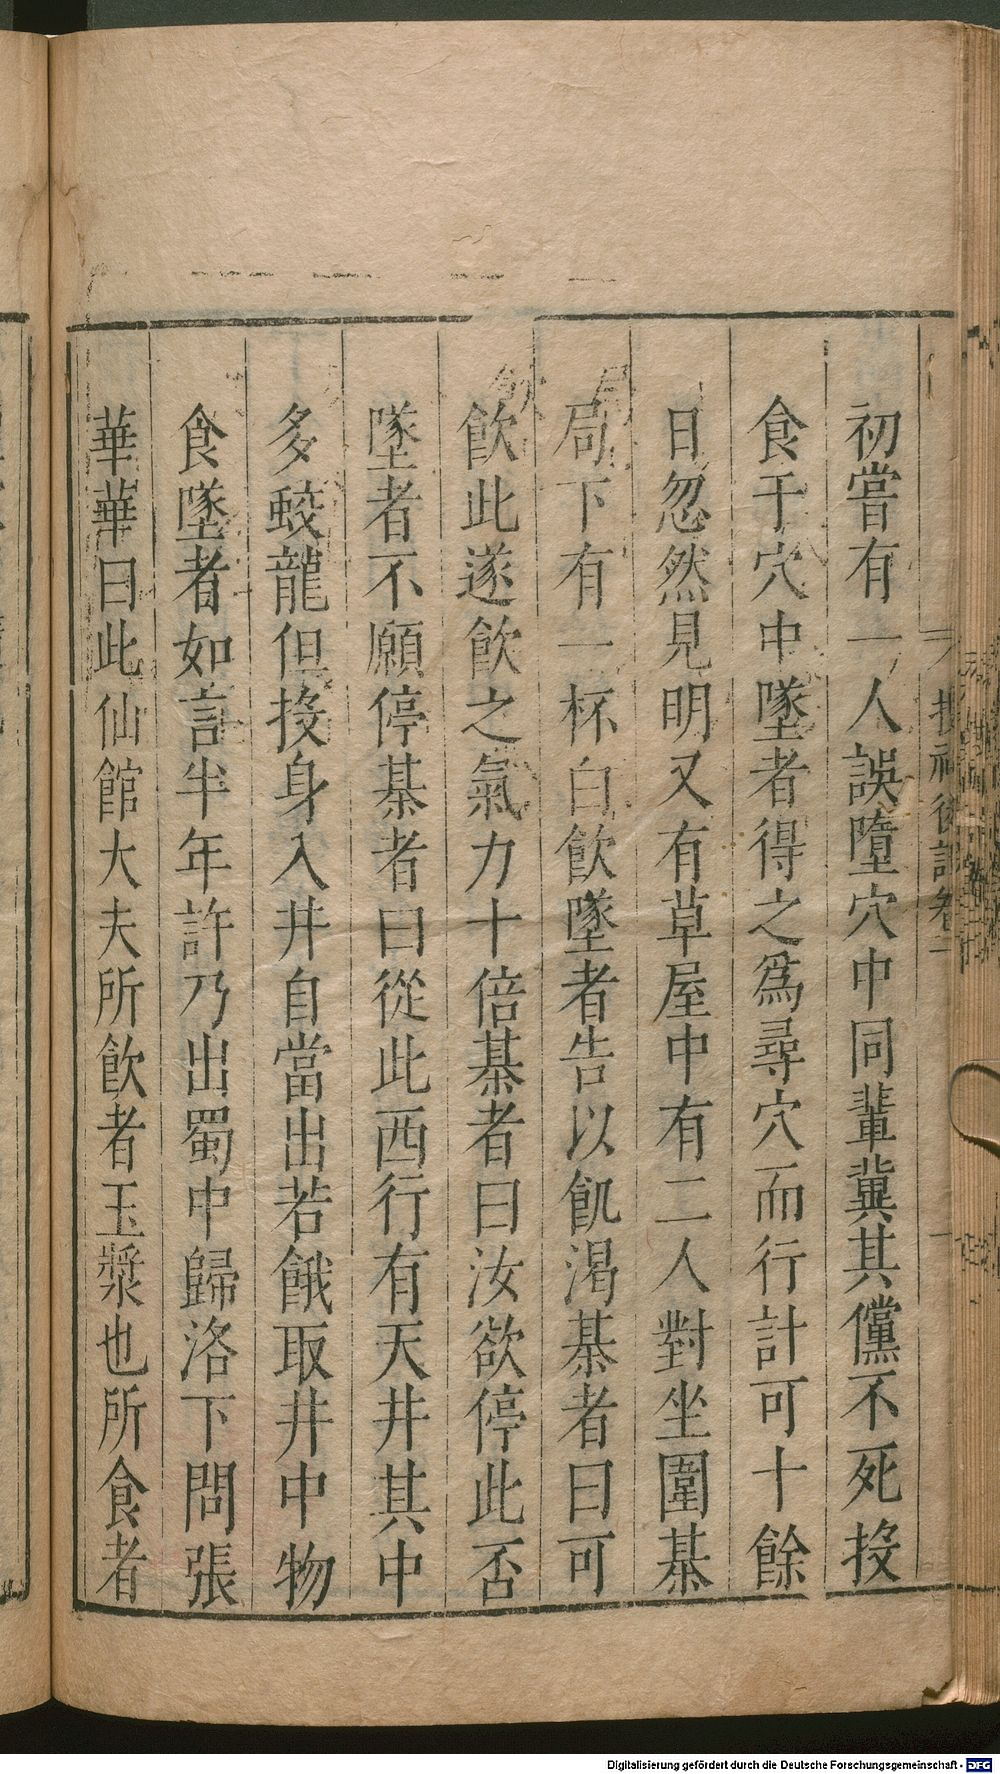 初嘗有一人誤墮穴中同輩冀其儻不死投
食于穴中墜者得之爲尋穴而行計可十餘
日忽然見明又有草屋中有二人對坐圍棊
局下有一杯白飲墜者告以飢渴棊者曰可
飲此遂飲之氣力十倍棊者曰汝欲停此否
墜者不願停棊者曰從此西行有天井其中
多蛟龍但投身入井自當出若餓取井中物
食墜者如言半年許乃出蜀中歸洛下問張
華華曰此仙館大夫所飲者玉漿也所食者
搜神後記卷一
Digitalisierung gefördert durch die Deutsche Forschungsgemeinschaft - DFG